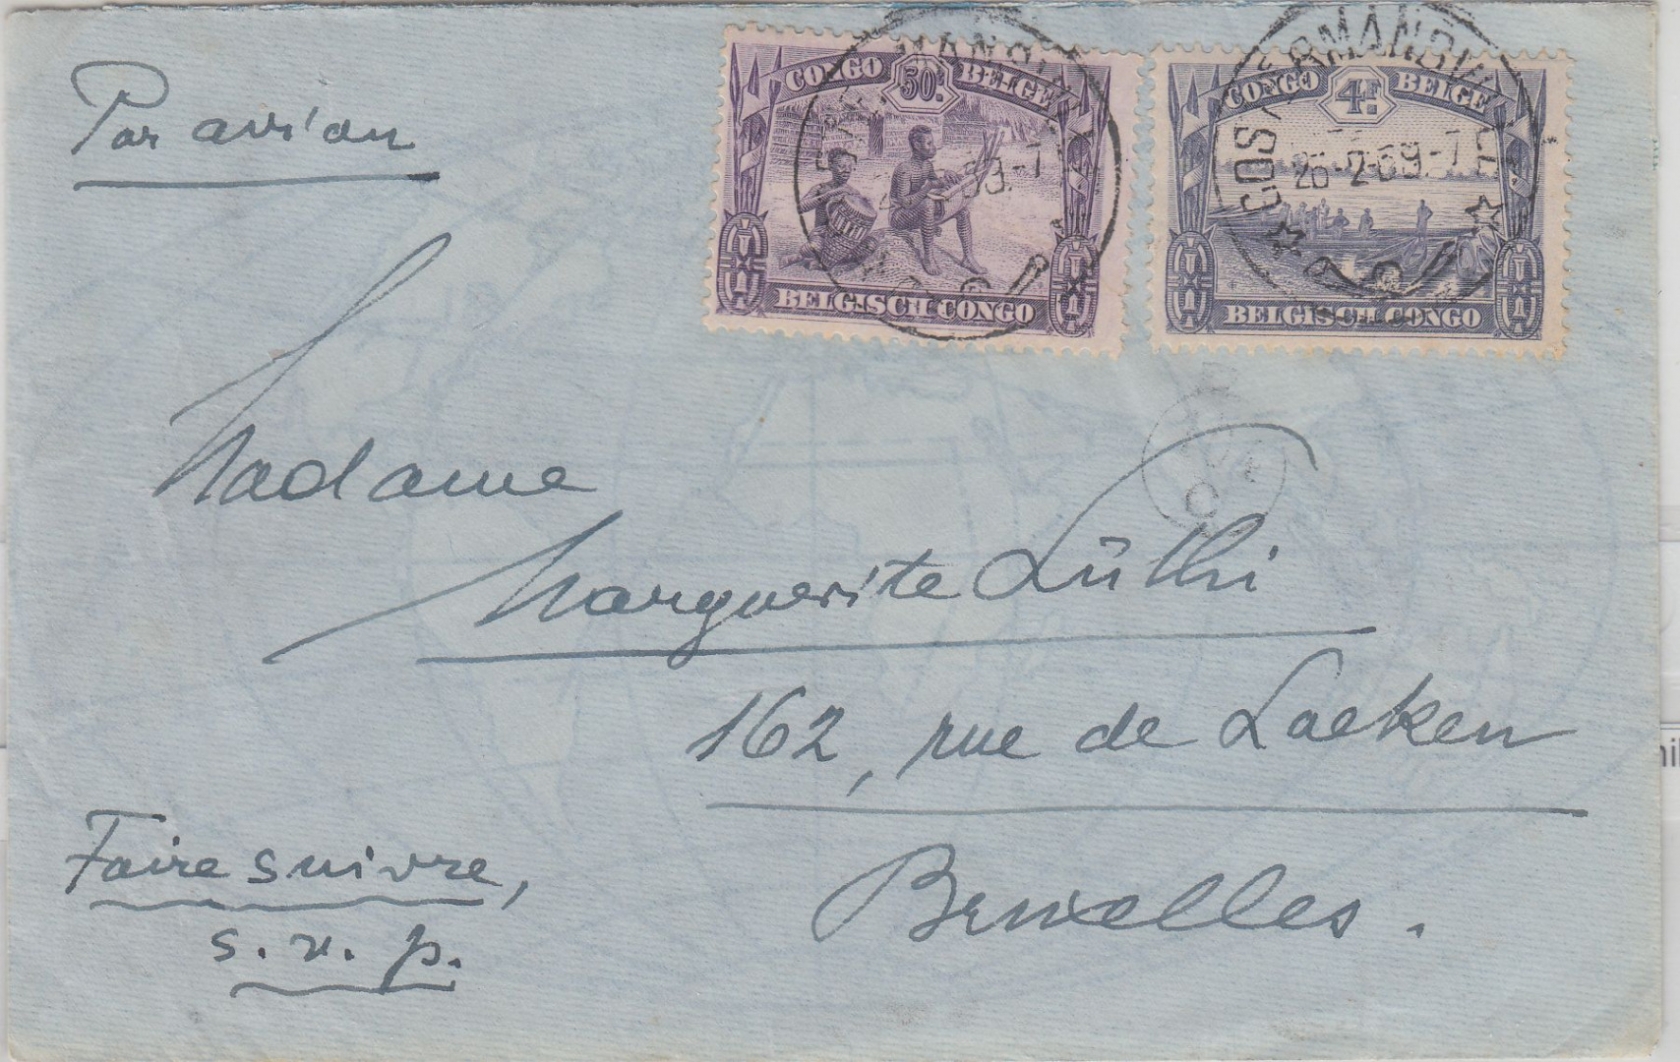 Par avion
CONGO 50c BELGE
BELGISCH CONGO
CONGO 4F BELGE
BELGISCH CONGO
COSTERMANSVILLE
26-2-39-7
Madame
Marguerite Lüthi
162, rue de Laeken
Bruxelles.
Faire suivre,
s. v. p.